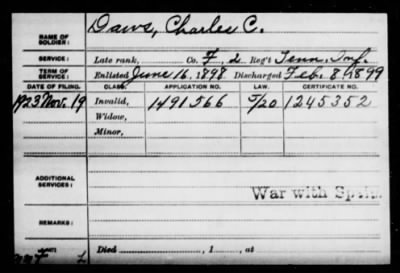 NAME OF SOLDIER: Daws, Charles C.
SERVICE: Late rank, Co. F, 2 Reg't Tenn. Inf.
TERM OF SERVICE: Enlisted June 16, 1898 Discharged Feb. 8, 1899
DATE OF FILING. CLASS. APPLICATION NO. LAW. CERTIFICATE NO.
1923 Nov. 19 Invalid, 1491566 5/20 1245352
Widow,
Minor,
ADDITIONAL SERVICES:
War with Spain
REMARKS:
Died , 1 , at